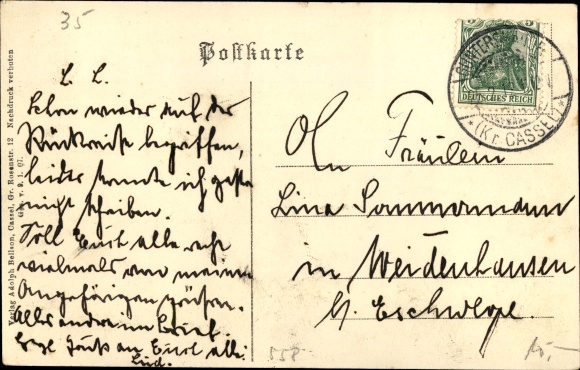 35
Postkarte
L. L.
Schon wieder auf der
Rückreise begriffen,
leider konnte ich gestern
nicht schreiben.
Soll Euch alle recht
vielmals von meinen
Angehörigen grüßen.
Alles andere im Brief.
Herzl. Gruß an Euch alle
Lud.
Verlag Adolph Bellson, Cassel, Gr. Rosenstr. 12 Nachdruck verboten
Ges. v. 9. 1. 07.
DEUTSCHES REICH
(Kr. CASSEL)
An Fräulein
Lina Sommermann
in Weidenhausen
b. Eschwege.
558